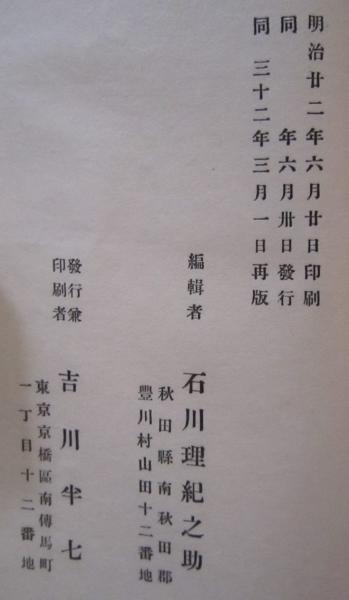 明治廿二年六月廿日印刷
同　年六月卅日發行
同　三十二年三月一日再版
編輯者　石川理紀之助
秋田縣南秋田郡
豐川村山田十二番地
發行兼
印刷者　吉川半七
東京京橋區南傳馬町
一丁目十二番地